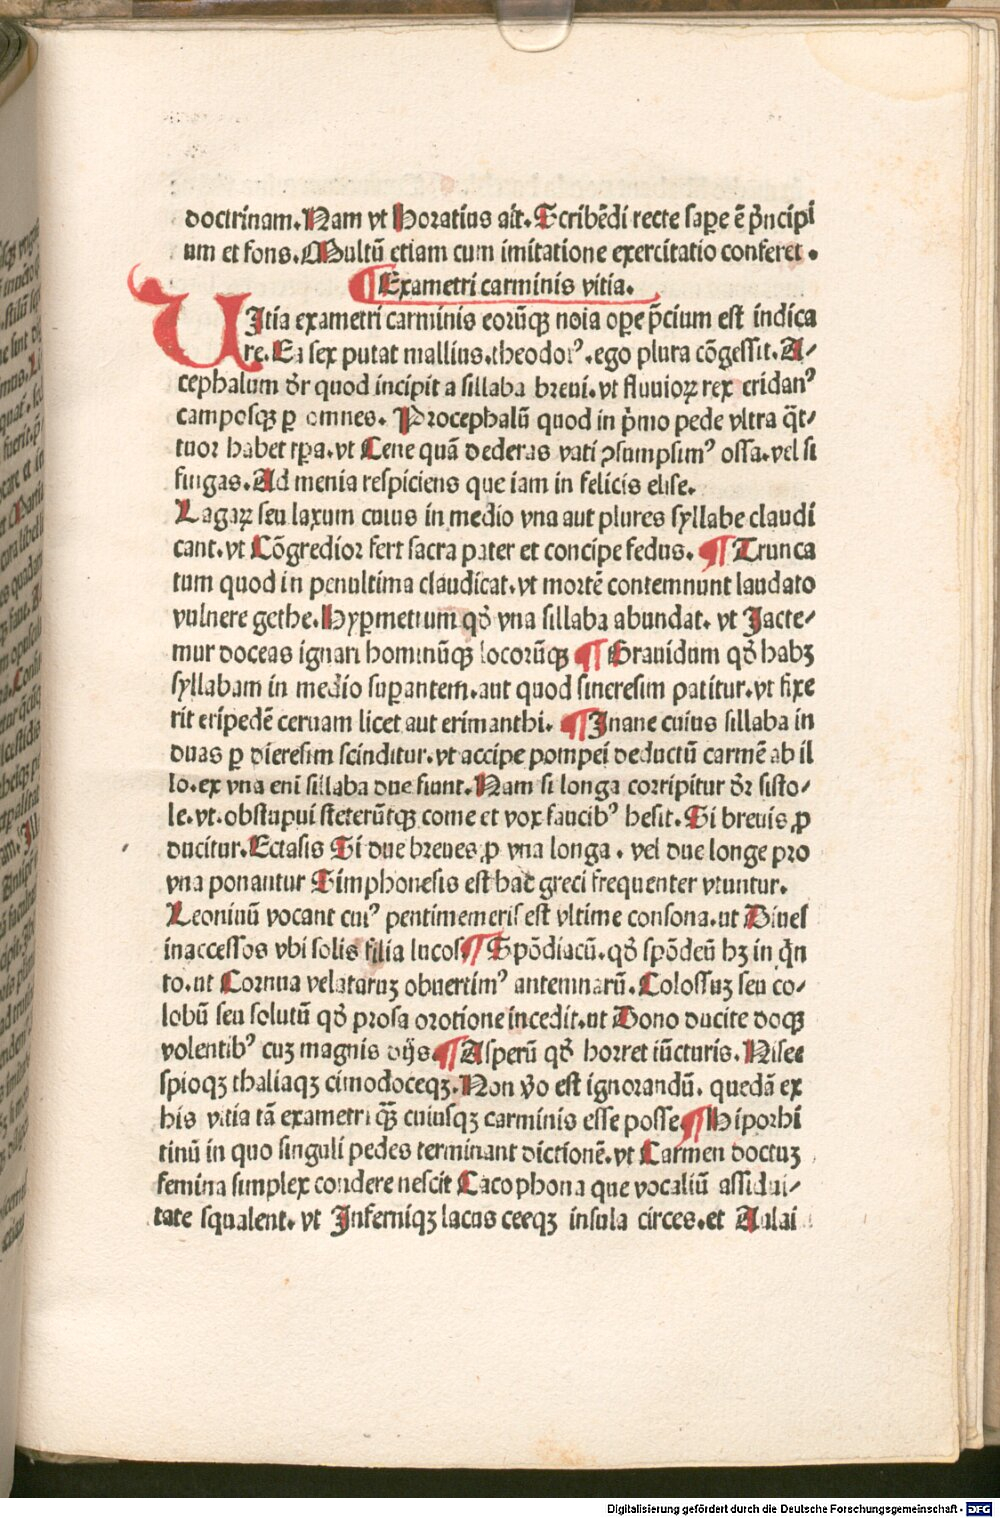 doctrinam. Nam vt Horatius ait. Scribēdi recte sapere ē p̄ncipi
um et fons. Multū etiam cum imitatione exercitatio conferet.
¶ Exametri carminis vitia.
VItia exametri carminis eorūqꝫ noīa ope p̄cium est indica
re. Ea sex putat mallius. theodorꝰ. ego plura cōgessit. A-
cephalum dr̄ quod incipit a sillaba breui. vt fluuioꝝ rex eridanꝰ
camposqꝫ ꝑ omnes. Procephalū quod in p̄mo pede vltra q̄t-
tuor habet tꝑa. vt Cene quā dederas vati ꝯsumpsimꝰ ossa. vel si
fingas. Ad menia respiciens que iam in felicis elise.
Lagaꝝ seu laxum cuius in medio vna aut plures syllabe claudi
cant. vt Cōgredior fert sacra pater et concipe fedus. ¶ Trunca
tum quod in penultima claudicat. vt mortē contemnunt laudato
vulnere gethe. Hyꝑmetrum qd̄ vna sillaba abundat. vt Iacte-
mur doceas ignari hominūqꝫ locorūqꝫ ¶ Grauidum qd̄ habꝫ
syllabam in medio suꝑantem. aut quod sineresim patitur. vt fixe
rit eripedē ceruam licet aut erimanthi. ¶ Inane cuius sillaba in
duas ꝑ dieresim scinditur. vt accipe pompei deductū carmē ab il
lo. ex vna enī sillaba due fiunt. Nam si longa corripitur dr̄ sisto-
le. vt. obstupui steterūtqꝫ come et vox faucibꝰ hesit. Si breuis ꝓ
ducitur. Ectasis Si due breues ꝓ vna longa. vel due longe pro
vna ponantur Simphonesis est hac greci frequenter vtuntur.
Leoninū vocant cuiꝰ pentimemeris est vltime consona. ut Diues
inaccessos vbi solis filia lucos ¶ Spōdiacū. qd̄ spōdeū hꝫ in q̄n
to. ut Cornua velataruꝫ obuertimꝰ antemnarū. Colossuꝫ seu co-
lobū seu solutū qd̄ prosa orotione incedit. ut Dono ducite doqꝫ
volentibꝰ cuꝫ magnis dijs. ¶ Asperū qd̄ horret iūcturis. Nisee
spioqꝫ thaliaqꝫ cimodoceqꝫ. Non v̄o est ignorandū. quedā ex
his vitia tā exametri q̄ꝫ cuiusqꝫ carminis esse posse. ¶ Hiporhi
tinū in quo singuli pedes terminant dictionē. vt Carmen doctuꝫ
femina simplex condere nescit Cacophona que vocaliū assidui-
tate squalent. vt Inferniqꝫ lacus ceeqꝫ insula circes. et Aulai
Digitalisierung gefördert durch die Deutsche Forschungsgemeinschaft - DFG